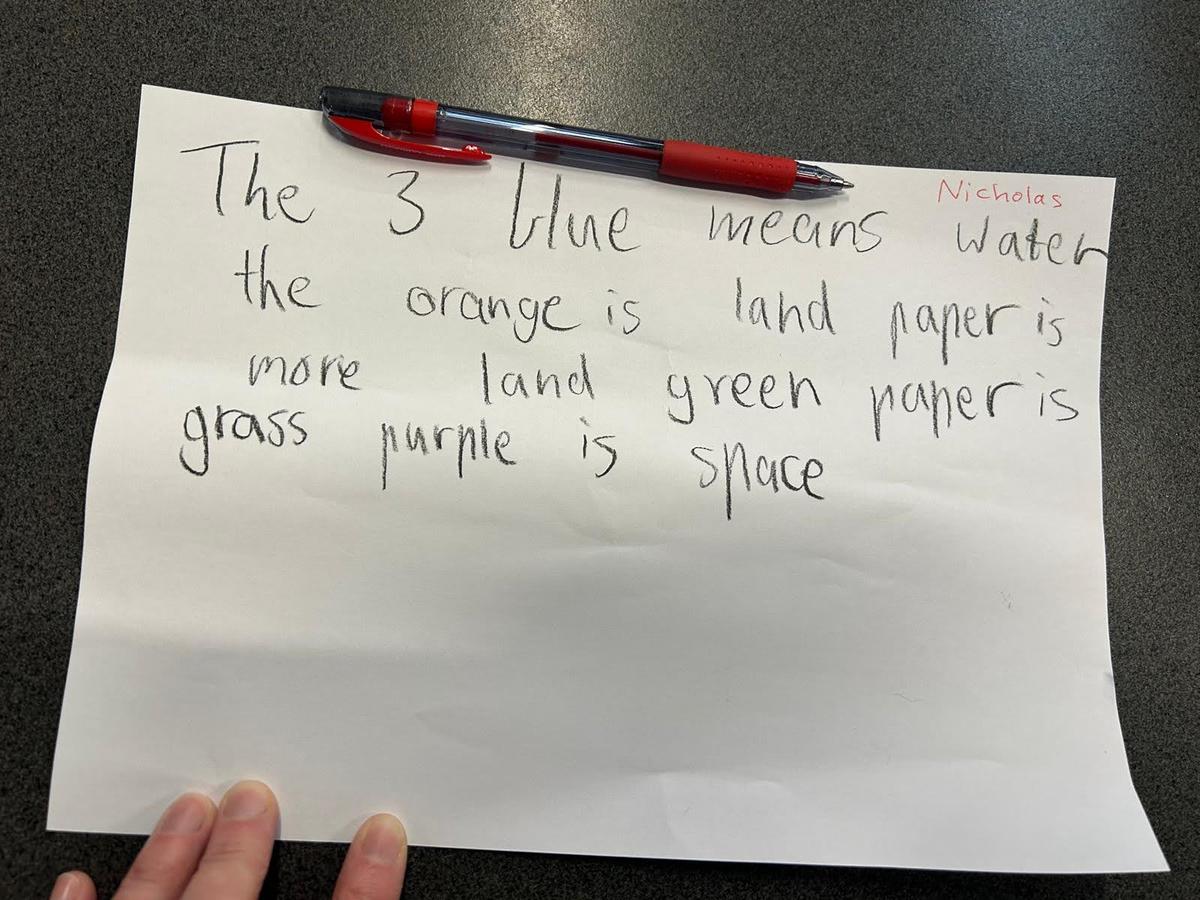 Nicholas
The 3 blue means water
the orange is land paper is
more land green paper is
grass purple is space